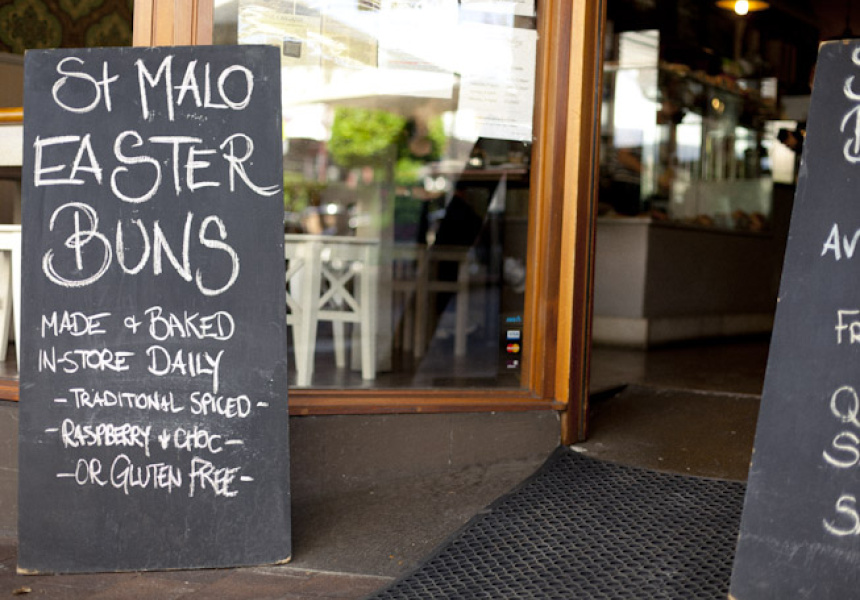 St MALO
EASTER
BUNS
MADE & BAKED
IN-STORE DAILY
- TRADITIONAL SPICED -
- RASPBERRY & CHOC -
- OR GLUTEN FREE -